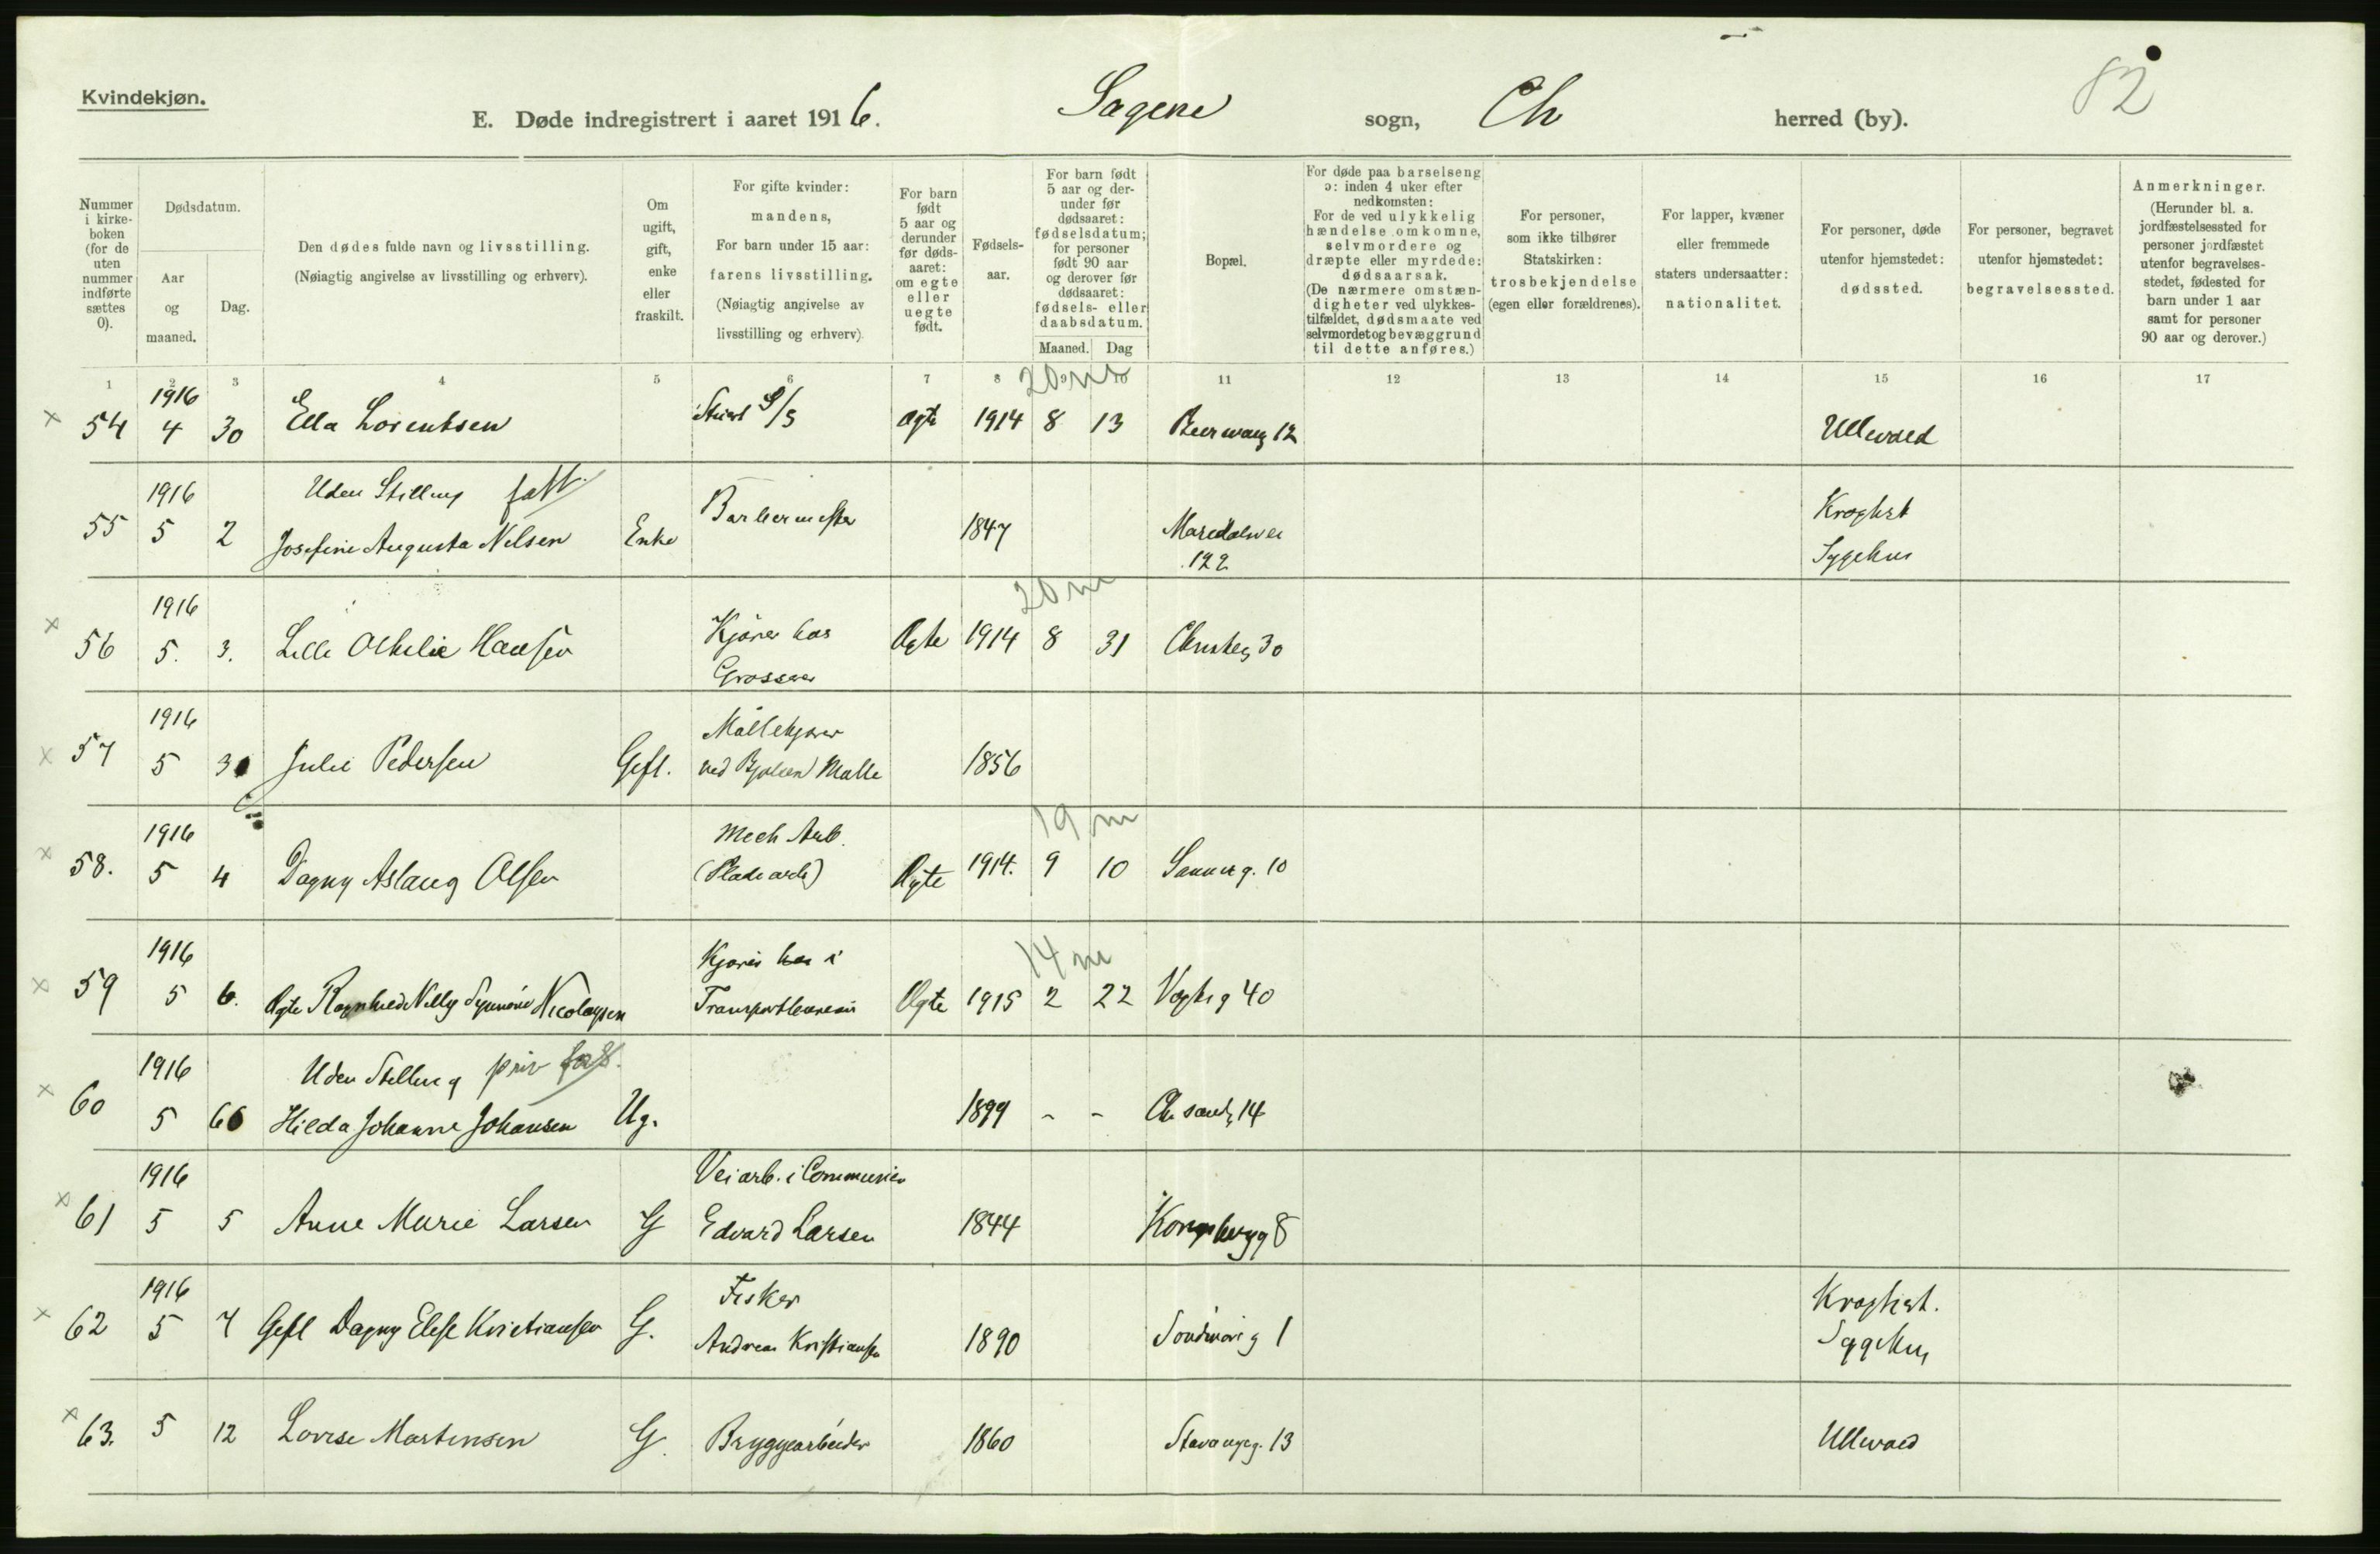 Kvindekjøn.
E. Døde indregistrert i aaret 1916.
Sagene sogn, Ch herred (by).
82
Nummer i kirkeboken (for de uten nummer indførte sættes 0).
Dødsdatum.
Aar og maaned.
Dag.
Den dødes fulde navn og livsstilling.
(Nøiagtig angivelse av livsstilling og erhverv).
Om ugift, gift, enke eller fraskilt.
For gifte kvinder: mandens,
For barn under 15 aar: farens livsstilling.
(Nøiagtig angivelse av livsstilling og erhverv).
For barn født 5 aar og derunder før dødsaaret: om egte eller uegte født.
Fødselsaar.
For barn født 5 aar og derunder før dødsaaret: fødselsdatum; for personer født 90 aar og derover før dødsaaret: fødsels- eller daabsdatum.
Maaned. Dag
Bopæl.
For døde paa barselseng ɔ: inden 4 uker efter nedkomsten:
For de ved ulykkelig hændelse omkomne, selvmordere og dræpte eller myrdede: dødsaarsak.
(De nærmere omstændigheter ved ulykkestilfældet, dødsmaate ved selvmordet og bevæggrund til dette anføres.)
For personer, som ikke tilhører Statskirken: trosbekjendelse (egen eller forældrenes).
For lapper, kvæner eller fremmede staters undersaatter: nationalitet.
For personer, døde utenfor hjemstedet: dødssted.
For personer, begravet utenfor hjemstedet: begravelsessted.
Anmerkninger.
(Herunder bl. a. jordfæstelsessted for personer jordfæstet utenfor begravelsesstedet, fødested for barn under 1 aar samt for personer 90 aar og derover.)
1 2 3 4 5 6 7 8 9 10 11 12 13 14 15 16 17
20 m
1916
54 4 30 Ella Lorentsen S/S Ægte 1914 8 13 12 Ullevaal
1916 Uden Stilling fatt. Barbermester Kroghst
55 5 2 Josefine Augusta Nilsen Enke 1847 Maridalsvei
122 Sygehus
20 m
1916
56 5. 3. Lilli Othilie Hansen Kjører hos Ægte 1914 8 31 30
Grosserer
1916 Møllekjører
57 5 3 Julie Pedersen Gift. ved Bjølsen Mølle 1856
19 m
1916 Mech Arb.
58. 5 4 Dagny Aslaug Olsen (Pladearb) Ægte 1914. 9 10 Sannerg. 10
14 m
1916 Kjører i
59 5 6. Ægte Ragnhild Nelly Synnøve Nicolaysen Ægte 1915 2 22 Vogtsg 40
1916 Uden Stilling priv
60 5 6 Hilda Johanne Johansen Ug. 1899 - - Chr sandg 14
1916 Veiarb. i Communen
61 5 5 Anne Marie Larsen G Edvard Larsen 1844 Kongsbergg 8
1916 Fisker Kroghst.
62 5 7 Gift Dagny Elise Kristiansen G. Andreas Kristiansen 1890 Søndmørg 1 Sygehus
63. 5 12 Lovise Martinsen G. Bryggearbeider 1860 Stavangerg. 13 Ullevaal